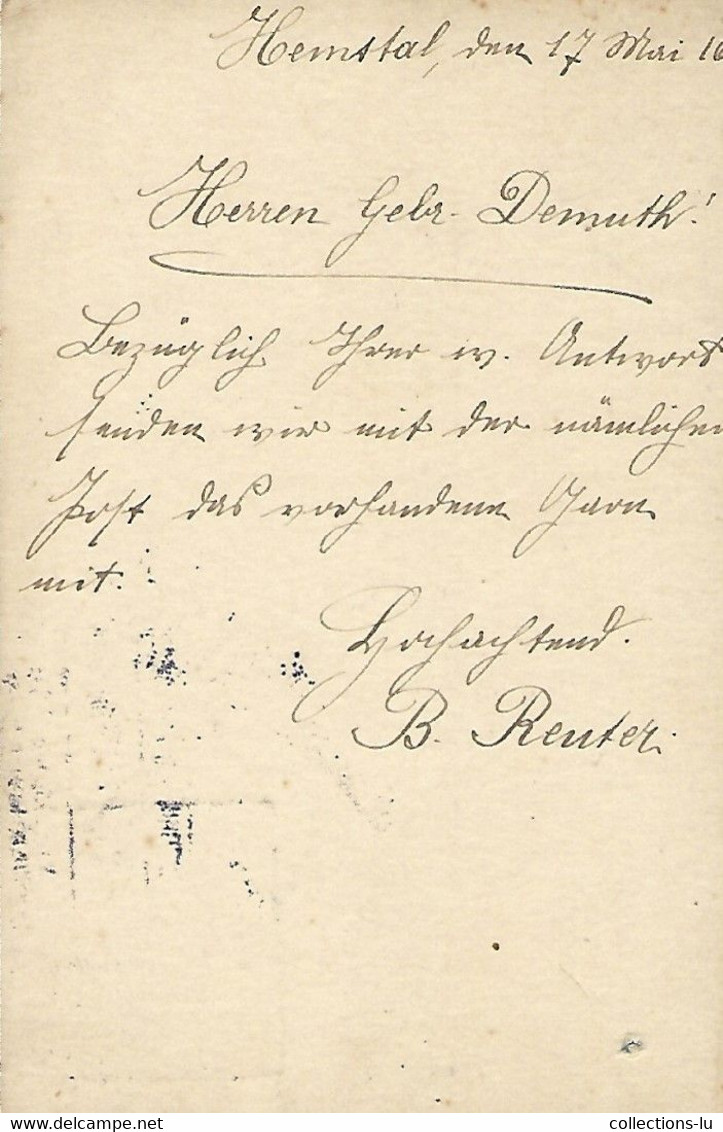 Hemstal, den 17 Mai 16
Herren Gebr. Demuth!
Bezüglich Ihrer w. Antwort
senden wir mit der nämlichen
Post das vorhandene Garn
mit.
Hochachtend.
B. Reuter.
Delcampe.net
collections-lu